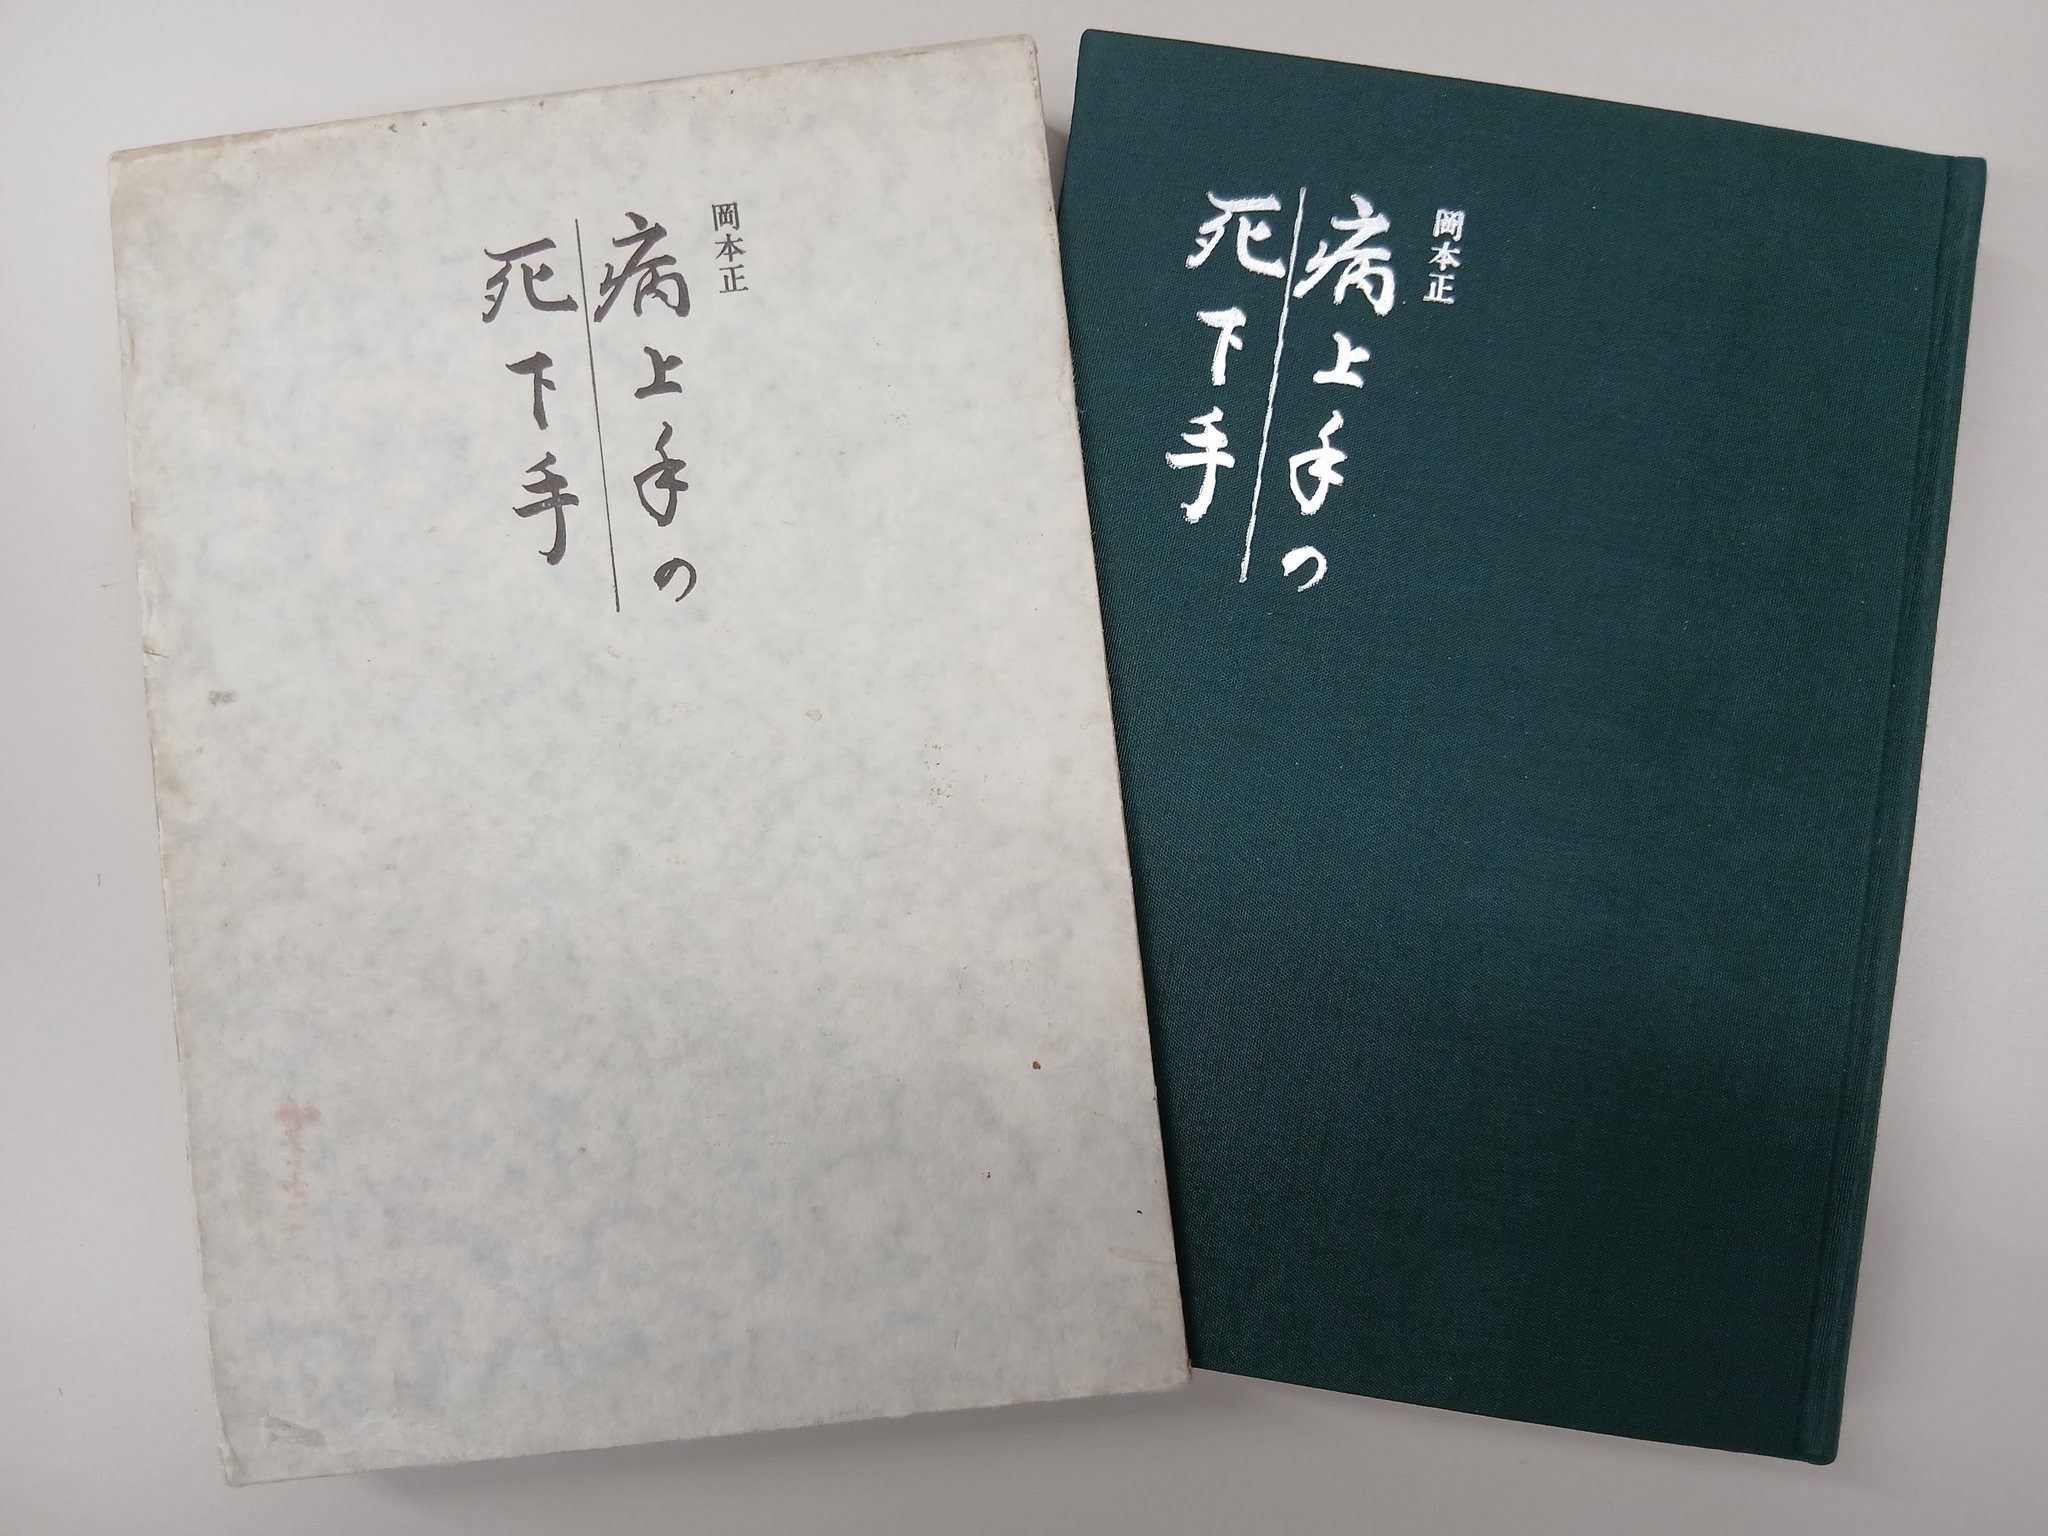 岡本正
病上手の
死下手
岡本正
病上手の
死下手